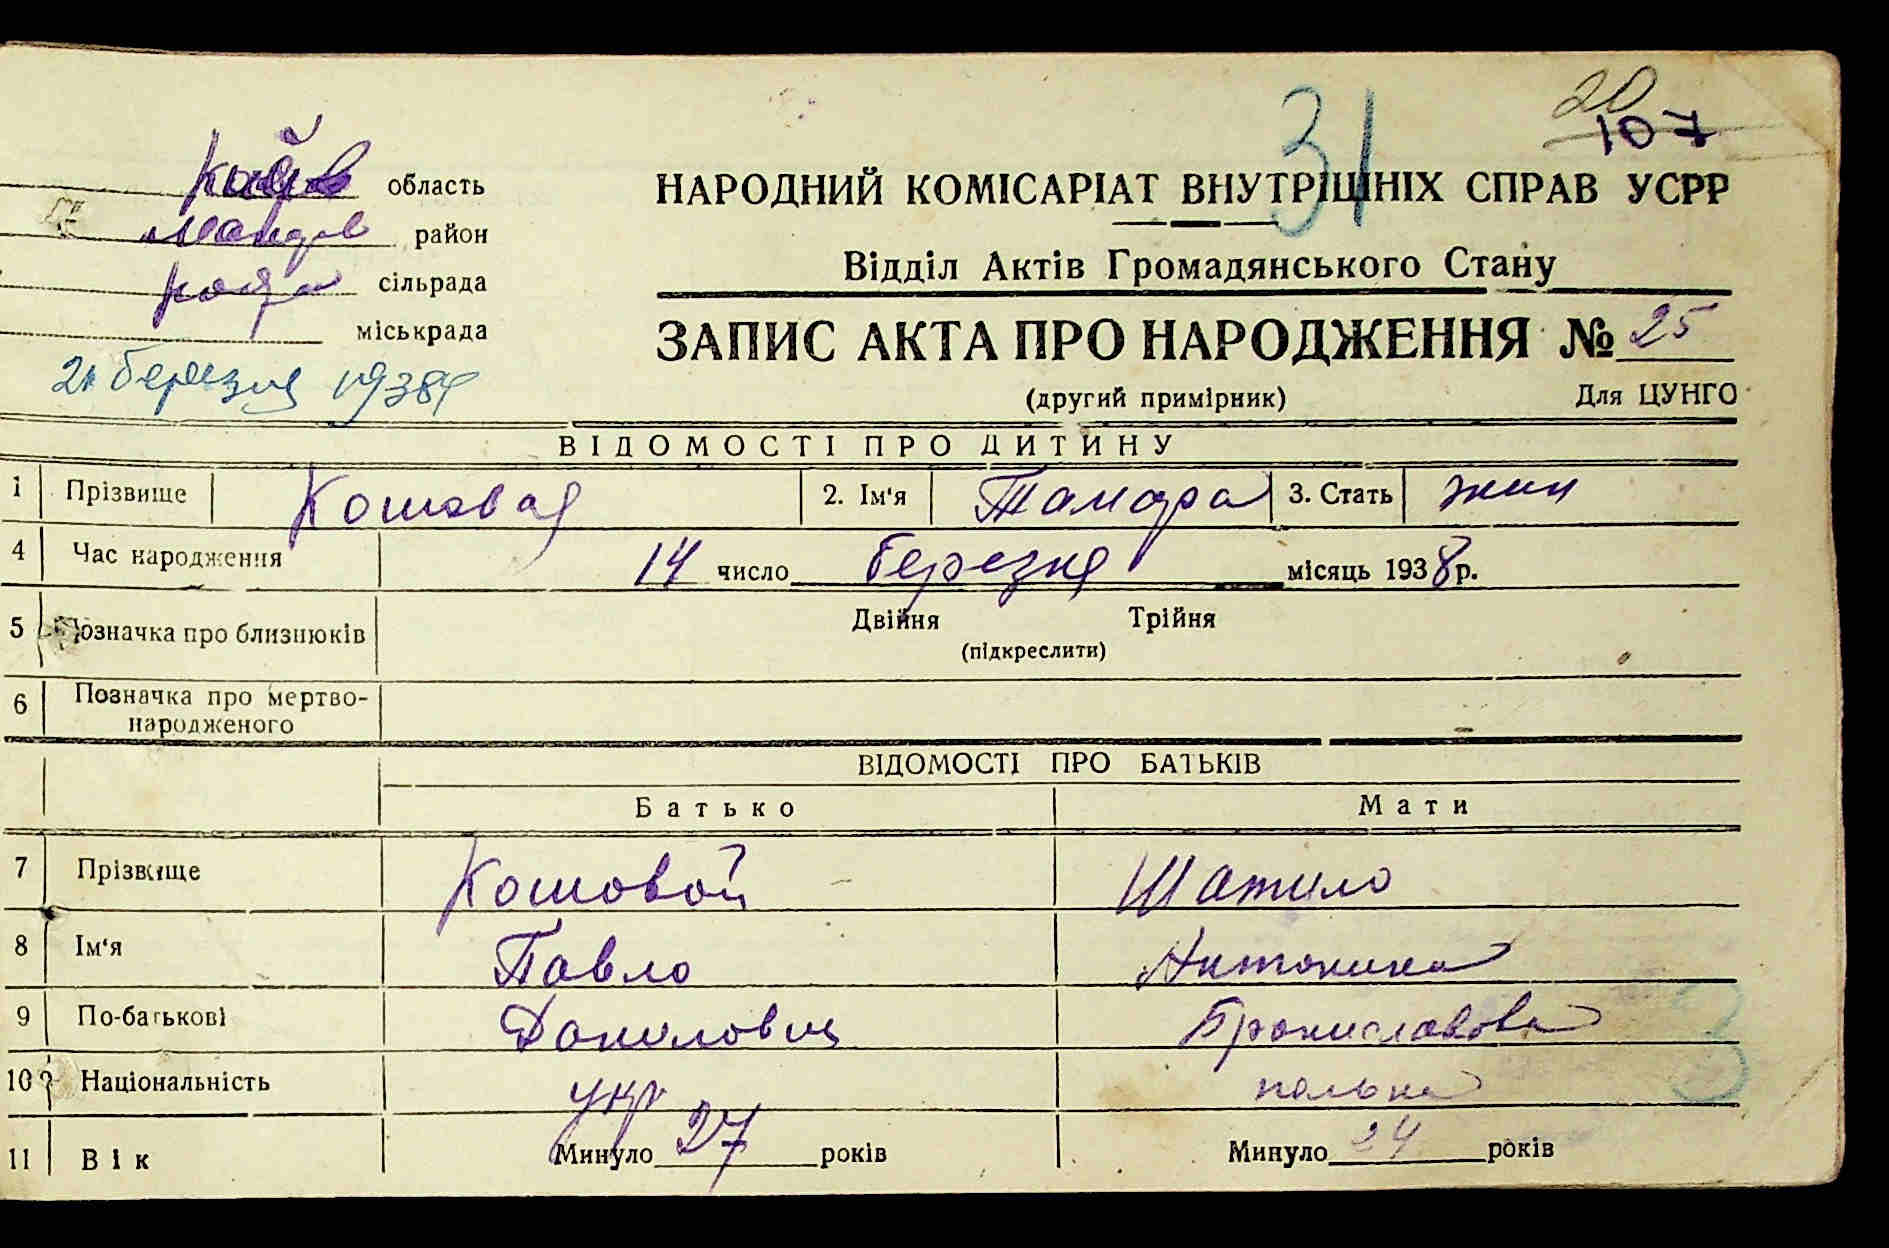 20
107
31
Київ область
район
сільрада
міськрада
21 березня 1938р
НАРОДНИЙ КОМІСАРІАТ ВНУТРІШНІХ СПРАВ УСРР
Відділ Актів Громадянського Стану
ЗАПИС АКТА ПРО НАРОДЖЕННЯ № 25
(другий примірник) Для ЦУНГО
ВІДОМОСТІ ПРО ДИТИНУ
1 Прізвище Кошовая 2. Ім'я Тамара 3. Стать жин
4 Час народження 14 число березня місяць 1938р.
5 Позначка про близнюків Двійня Трійня
(підкреслити)
6 Позначка про мертво-
народженого
ВІДОМОСТІ ПРО БАТЬКІВ
Батько Мати
7 Прізвище Кошовой Шатило
8 Ім'я Павло Антонина
9 По-батькові Данилович Брониславова
10 Національність укр полька
11 Вік Минуло 27 років Минуло 24 років
3